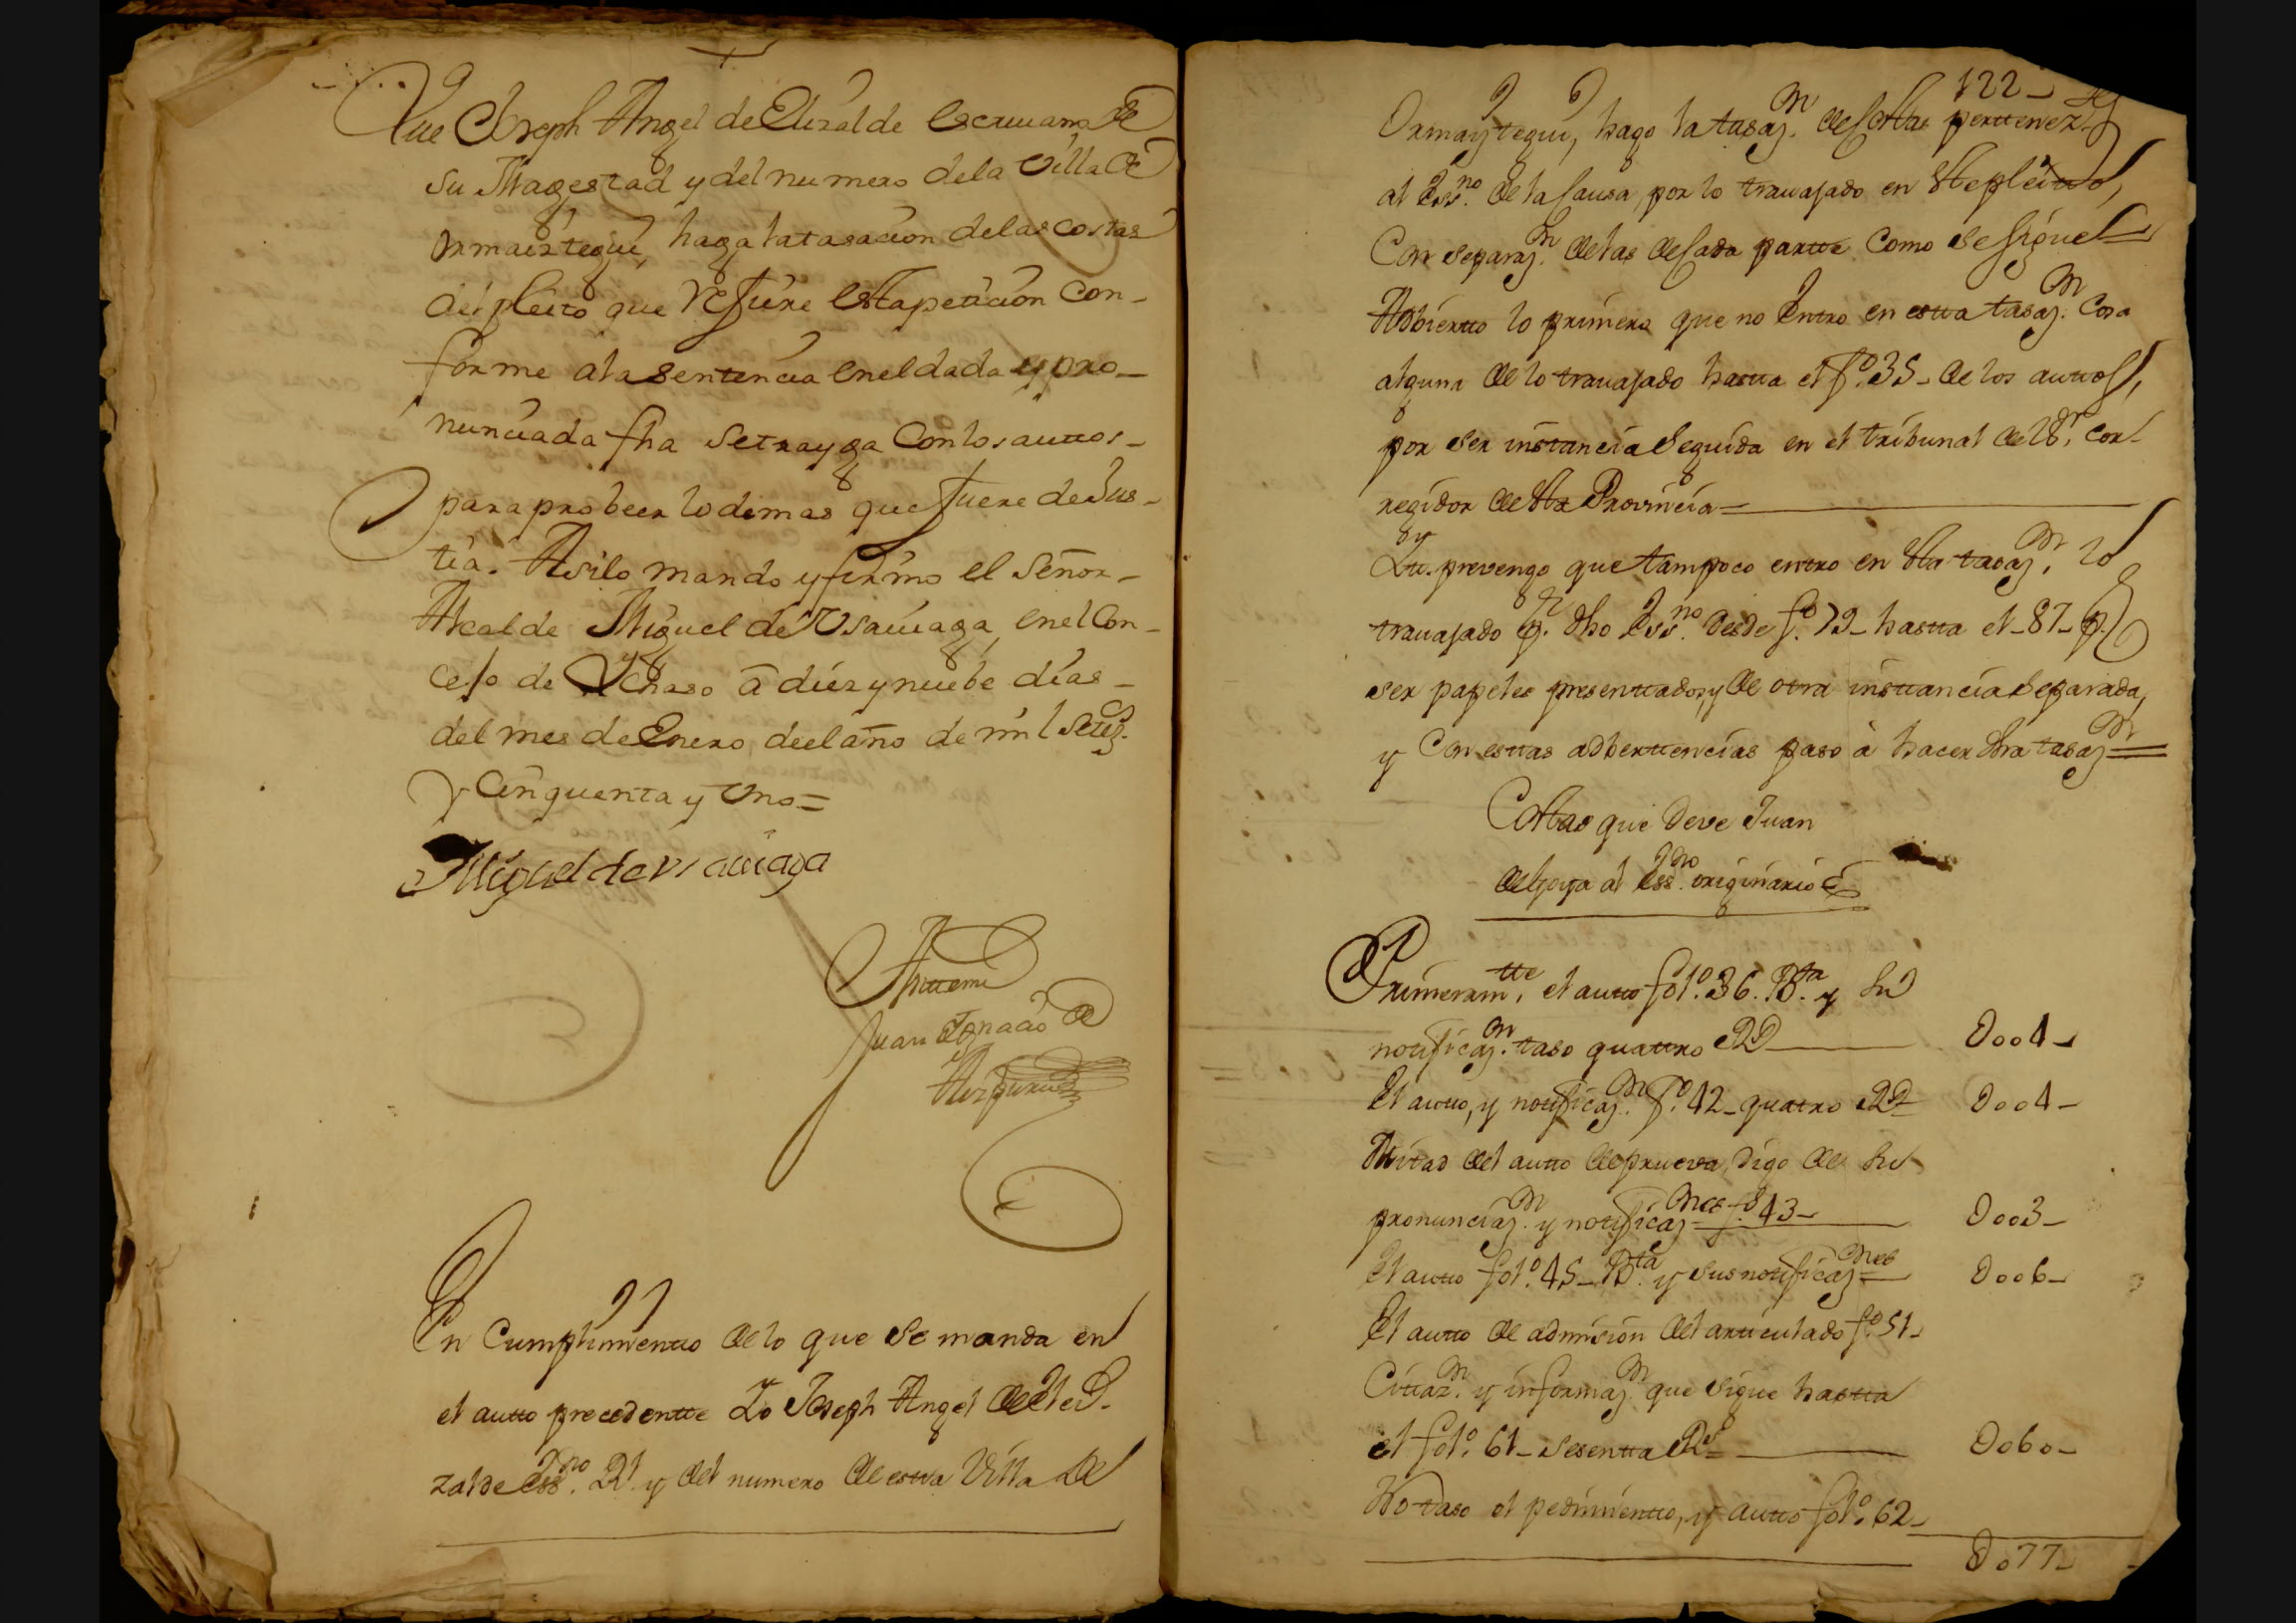 Que Joseph Angel de Elizalde escriuano de
su Magestad y del numero dela Villa de
Ormaiztegui, haga la tasacion delas costas
del pleito que refiere esta peticion con-
forme ala sentencia enel dada y pro-
nunciada fha se trayga con los auttos-
para probeer lo demas que fuere de Jus-
tia. Asilo mando y firmo el Señor-
Alcalde Miguel de Usauiaga, enel Con-
cejo de Ychaso â diez y nuebe dias-
del mes de Enero, deel año de mil Setez.
y Cinquenta y Uno=
Miguel de Usauiaga
Antemi
Juan Ignacio de
En Cumplimientto de lo que se manda en
el autto precedentte Yo Joseph Angel de Eli-
zalde ess.no Rl. y del numero de estta Villa de
122-
Ormayztegui, hago la tasaz.n de costtas pertenez.
al Ess.no de la Causa, por lo trauajado en este pleitto,
Con separaz.n de las de cada partte como se sigue
Adbiertto lo primero que no Entro en estta tasaz.n cosa
alguna de lo trauajado hastta el fº.35- de los auttos,
por ser instancia seguida en el tribunal del Sr. cor-
regidor de estta Provincia=
Ytt. prevengo que tampoco entro en estta tasaz.n lo
trauajado p.r dho Ess.no desde fº.79- hastta el-87- p.r
ser papeles presenttados, y de otra insttancia separada,
y Con esttas adberttencias paso à hacer dha tasaz.n=
Costtas que deve Juan
de Goya al Ess.no originario
Primeram.tte, el autto folº.36. B.ta y su
notificaz.n taso quattro RD 0004-
El autto, y notificaz.n fº.42- quatro RD 0004-
Mitad del autto de prueva, digo de su
pronunciaz.n y notificaz.nes fº.43- 0003-
El autto folº.45- B.ta y sus notificaz.nes 0006-
El autto de admision del articulado fº.51-
Cittaz.n y informaz.n que sigue hastta
el folº. 61- sesentta Rs 0060-
No taso el pedimientto, y autto folº.62-
0077-